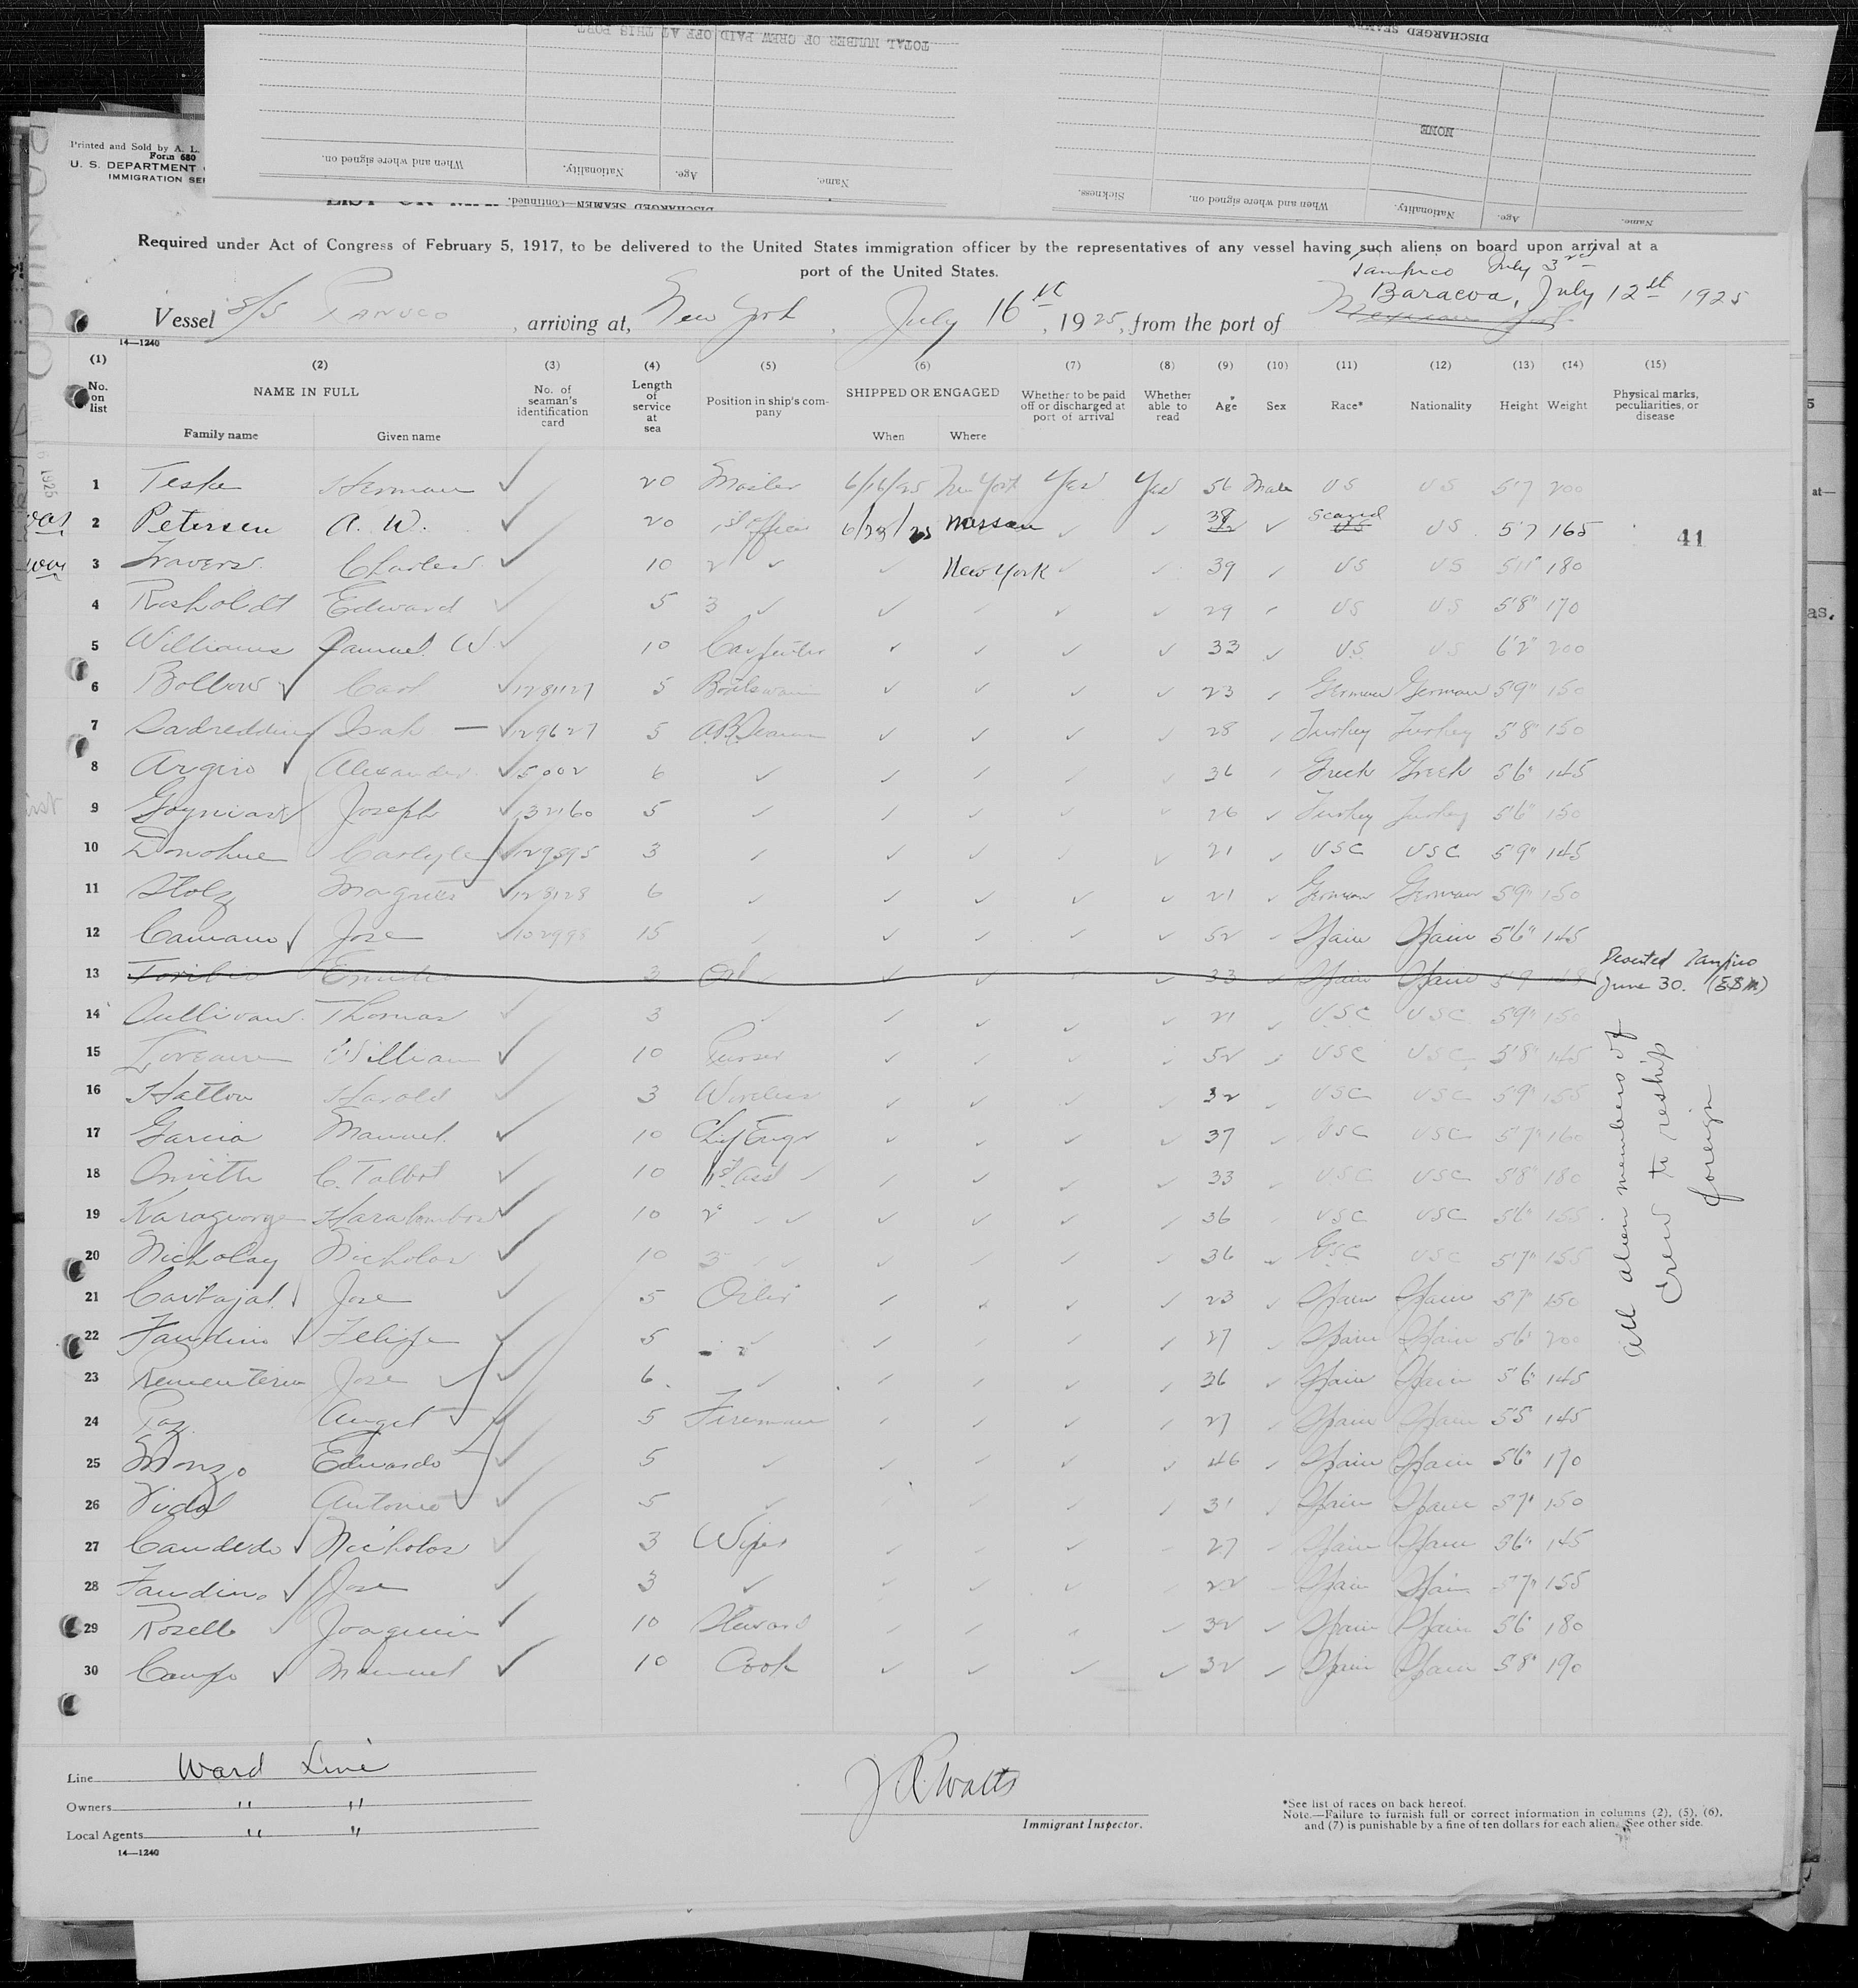 TOTAL NUMBER OF CREW PAID OFF AT THIS PORT
DISCHARGED SEAMEN
NONE
When and where signed on. Nationality. Age. Name.
Sickness. When and where signed on. Nationality. Age. Name.
DISCHARGED SEAMEN—Continued.
Printed and Sold by A. L.
Form 680
U. S. DEPARTMENT
IMMIGRATION SE
Required under Act of Congress of February 5, 1917, to be delivered to the United States immigration officer by the representatives of any vessel having such aliens on board upon arrival at a
port of the United States.
Tampico July 3rd
Baracoa, July 12th 1925
Vessel S/S Panuco, arriving at, New York, July 16th, 1925, from the port of
14—1240
(1) (2) (3) (4) (5) (6) (7) (8) (9) (10) (11) (12) (13) (14) (15)
No. on list NAME IN FULL Family name Given name No. of seaman's identification card Length of service at sea Position in ship's company SHIPPED OR ENGAGED When Where Whether to be paid off or discharged at port of arrival Whether able to read Age* Sex Race* Nationality Height Weight Physical marks, peculiarities, or disease
1 Teske Herman ✓ 20 Master 6/16/25 New York Yes Yes 56 Male US US 5'7 200
2 Petersen A. W. ✓ 20 1st Officer 6/23/25 Nassau ✓ ✓ 38 ✓ Scand US 5'7 165
41
3 Travers Charles ✓ 10 2 ✓ ✓ New York ✓ ✓ 39 ✓ US US 5'11" 180
4 Rosholdt Edward ✓ 5 3 ✓ ✓ ✓ ✓ ✓ 29 ✓ US US 5'8" 170
5 Williams Samuel W. ✓ 10 Carpenter ✓ ✓ ✓ ✓ 33 ✓ US US 6'2" 200
6 Bollow Carl ✓ 128127 5 Boatswain ✓ ✓ ✓ ✓ 23 ✓ German German 5'9" 150
7 Sadreddin Isak — ✓ 129627 5 A.B. Seaman ✓ ✓ ✓ ✓ 28 ✓ Turkey Turkey 5'8" 150
8 Argiro Alexander ✓ 5002 6 ✓ ✓ ✓ ✓ ✓ 36 ✓ Greek Greek 5'6" 145
9 Joseph ✓ 132160 5 ✓ ✓ ✓ ✓ ✓ 26 ✓ Turkey Turkey 5'6" 150
10 Donohue Carlyle ✓ 129595 3 ✓ ✓ ✓ ✓ ✓ 21 ✓ USC USC 5'9" 145
11 Stolz Magnus ✓ 128128 6 ✓ ✓ ✓ ✓ ✓ 21 ✓ German German 5'9" 150
12 Camano Jose ✓ 102998 15 ✓ ✓ ✓ ✓ ✓ 52 ✓ Spain Spain 5'6" 145
13 Toribio 3 Ord ✓ ✓ ✓ ✓ 33 Spain Spain 5'9
Deserted Tampico
June 30. (ESM)
14 Sullivan Thomas ✓ 3 ✓ ✓ ✓ ✓ ✓ 21 ✓ USC USC 5'9" 150
15 William ✓ 10 Purser ✓ ✓ ✓ ✓ 52 ✓ USC USC 5'8" 145
16 Hatton Harold ✓ 3 Wireless ✓ ✓ ✓ ✓ 32 ✓ USC USC 5'9" 155
17 Garcia Manuel ✓ 10 Chf Engr ✓ ✓ ✓ ✓ 37 ✓ USC USC 5'7" 160
18 Smith C. Talbot ✓ 10 1st Asst ✓ ✓ ✓ ✓ ✓ 33 USC USC 5'8" 180
19 Karageorge Haralambos ✓ 10 2 ✓ ✓ ✓ ✓ ✓ ✓ 36 USC USC 5'6" 155
20 Nicholay Nicholas ✓ 10 3 ✓ ✓ ✓ ✓ ✓ 36 ✓ USC USC 5'7" 155
21 Carbajal Jose ✓ 5 Oiler ✓ ✓ ✓ ✓ 23 ✓ Spain Spain 5'7" 150
22 Fandino Felipe ✓ 5 ✓ ✓ ✓ ✓ ✓ 27 ✓ Spain Spain 5'6" 200
23 Rementeria Jose ✓ 6 ✓ ✓ ✓ ✓ ✓ 36 ✓ Spain Spain 5'6" 145
24 Paz Angel ✓ 5 Fireman ✓ ✓ ✓ ✓ 27 ✓ Spain Spain 5'5 145
25 Monzo Eduardo ✓ 5 ✓ ✓ ✓ ✓ ✓ 46 ✓ Spain Spain 5'6" 170
26 Vidal Antonio ✓ 5 ✓ ✓ ✓ ✓ 31 ✓ Spain Spain 5'7" 150
27 Candedo Nicholas ✓ 3 Wiper ✓ ✓ ✓ ✓ 27 ✓ Spain Spain 5'6" 145
28 Fandino Jose ✓ 3 ✓ ✓ ✓ ✓ ✓ 22 Spain Spain 5'7" 155
29 Rosello Joaquin ✓ 10 Steward ✓ ✓ ✓ ✓ 32 ✓ Spain Spain 5'6 180
30 Campo Manuel ✓ 10 Cook ✓ ✓ ✓ ✓ 32 ✓ Spain Spain 5'8" 190
All alien members of
Crew to reship
foreign
Line Ward Line
Owners " "
Local Agents " "
14—1240
J R Watts
Immigrant Inspector.
*See list of races on back hereof.
Note.—Failure to furnish full or correct information in columns (2), (5), (6),
and (7) is punishable by a fine of ten dollars for each alien. See other side.